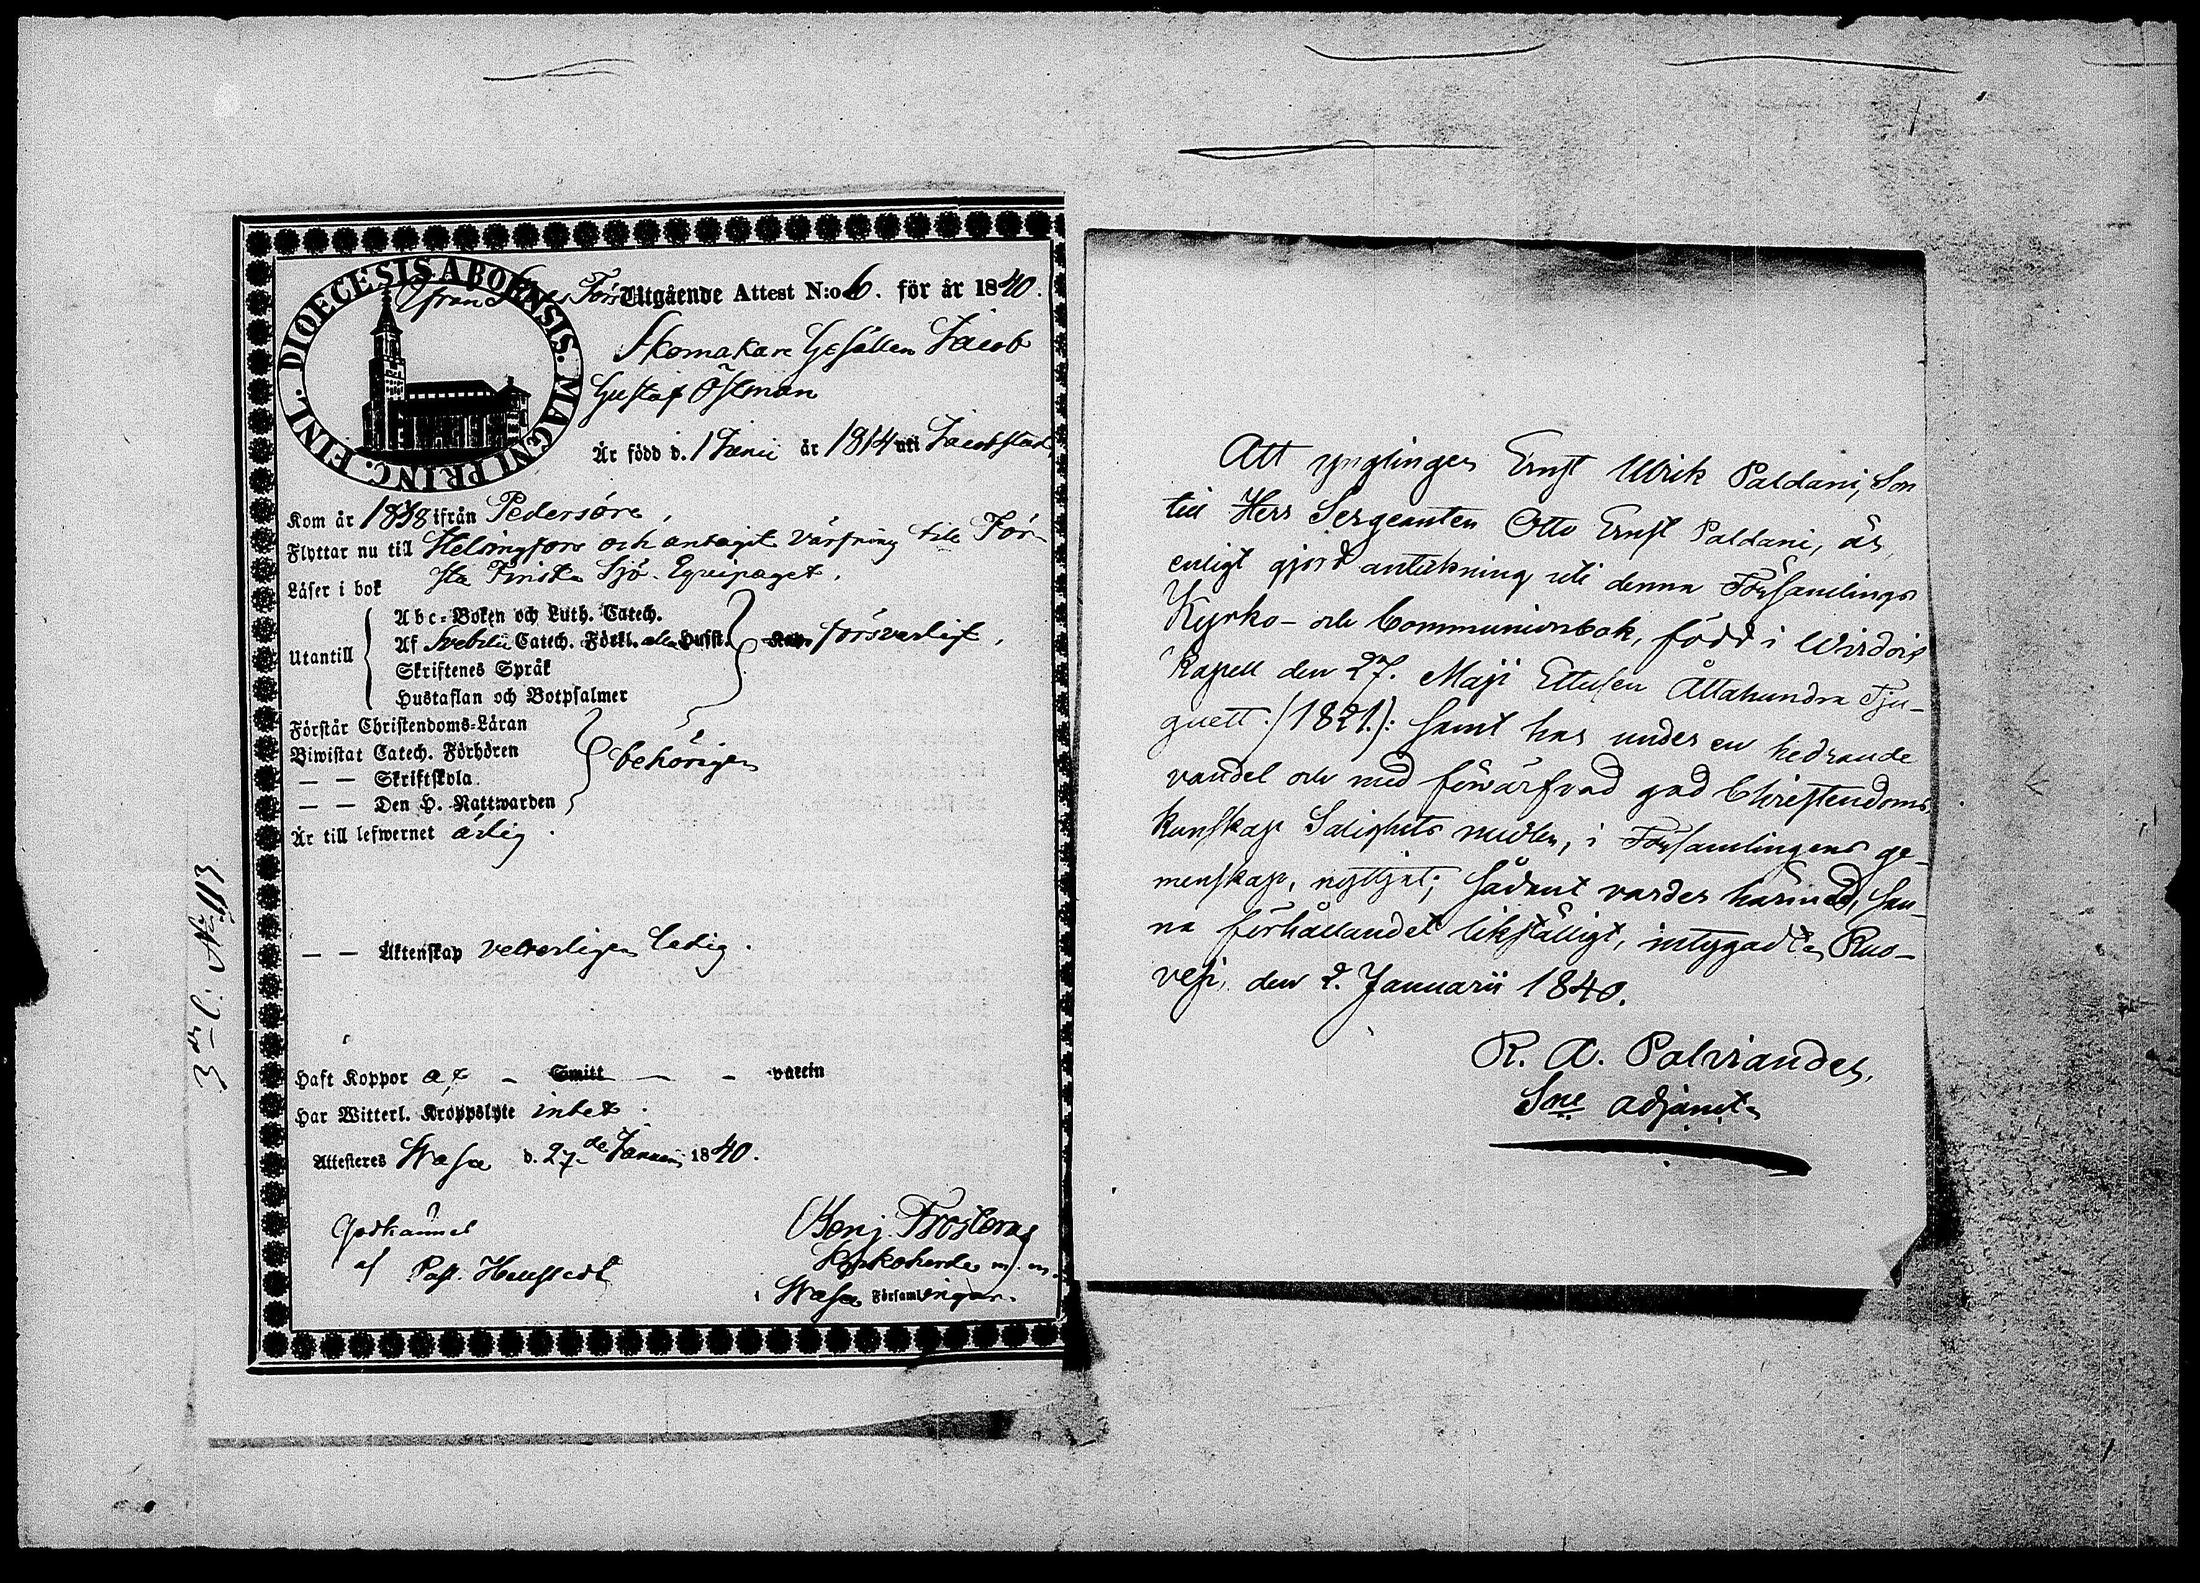 DIOECESIS ABOENSIS. MAGNI PRINC. FINL.
Utgående Attest N:o 6. för år 1840.
Skomakare Gesällen Jacob
Gustaf Östman
Är född d. 1 Junii år 1814 uti Jacobstad
Kom år 1838 ifrån Pedersöre,
Flyttar nu till Helsingfors och antagit värfning till För-
sta Finska Sjö-Equipaget.
Läser i bok
Utantill
Abc-Boken och Luth. Catech.
Af Svebelii Catech. Förkl. försvarligt,
Skriftenes Språk
Hustaflan och Botpsalmer
Förstår Christendoms-Läran
Biwistat Catech. Förhören behörigen
— — Skriftskola
— — Den H. Nattwarden
Är till lefwernet ärlig.
— — Äktenskap veterligen ledig.
Haft Koppor af - Smitt - - vaccin
Har Witterl. Kroppslyte intet.
Attesteres Wasa d. 27de Januarii 1840.
Godkännes
af Past. Hellstedt
Benj. Frosterus
Kyrkoherde m. m.
i Wasa Församlingar.
3dr l. No 113
Att ynglingen Ernst Ulrik Paldani, Son
till Herr Sergeanten Otto Ernst Paldani, är,
enligt gjord anteckning uti denna Församlings
Kyrko- och Communionbok, född i Wirdois
Kapell den 27. Maji Ettusen Åttahundra Tju-
guett /:1821:/ samt har under en hedrande
vandel och med förvärfvad god Christendoms
kunskap Salighets medlen, i Församlingens ge-
menskap, nyttjat; sådant varder härmed, san-
na förhållandet likställigt, intygadt. Ruo-
vesi, den 2. Januarii 1840.
R. A. Palviander,
Sne adjunct.